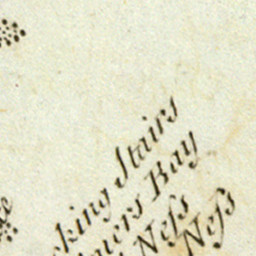 cking Stairs
mers Bay
Neſs
Neſs